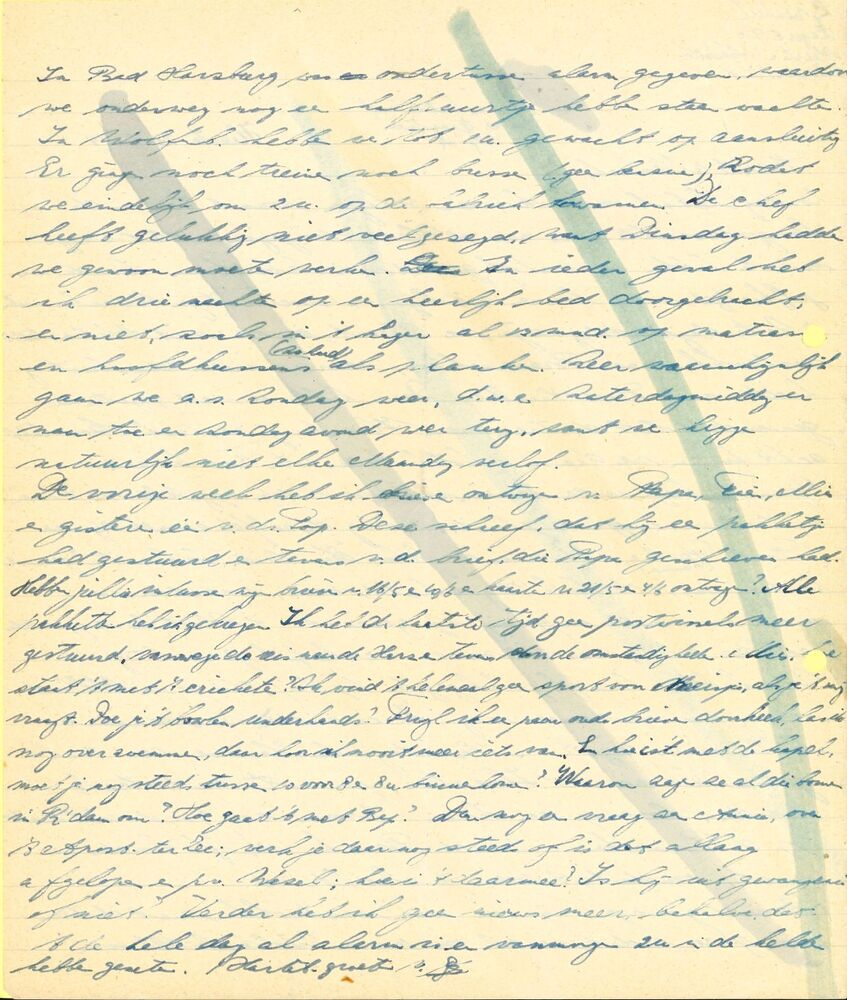 In Bad Harzburg was ondertusse alarm gegeven, waardoor
we onderweg nog een half uurtje hebbe staan wachte.
In Wolfenb. hebbe we tot 1 u. gewacht op aansluiting
Er ging noch treine noch busse (geen benzine), Zodat
we eindelijk om 2 u. op de fabriek kwamen. De chef
heeft gelukkig niet veel gezegd, want Dinsdag hadde
we gewoon moete werke. In ieder geval heb
ik drie nachte op een heerlijk bed doorgebracht,
en niet, zoals in 't Lager al 13 mnd. op matras
en hoofdkussens (zo hard) als planke. Zeer waarschijnlijk
gaan we a.s. Zondag weer, d.w.z. Zaterdagmiddag er
naar toe en Zondagavond weer terug, want we krijge
natuurlijk niet elke Maandag verlof.
De vorige week heb ik brieve ontvange v. Papa, Rien, Mien
en gistere één v. d. Pop. Deze schreef, dat hij een pakketje
had gestuurd en tevens v. d. brief, die Papa geschreven had.
Hebbe jullie intusse mijn brieve v. 16/5 en en kaarte v. 21/5 en 4/6 ontvange? Alle
pakkette heb ik gekregen. Ik heb de laatste tijd geen postwissels meer
gestuurd, vanwege de reis naar de Harz en tevens om de omstandighede. hoe
staat 't met 't crickete? Ik vind 't helemaal geen sport voor meisjes, als je 't mij
vraagt. Doe je 't bowlen underhands? Terwijl ik een paar oude brieve doorkeek, las ik
nog over zwemmen, daar hoor ik nooit meer iets van. En hoe is 't met de kapel,
moet je nog steeds tusse 10 voor 8 en 8 u binnekome? Waarom zage ze al die bomen
in R'dam om? Hoe gaat 't met Bep? Dan nog een vraag aan Annie, over
't postk. ter Zee; werk je daar nog steeds of is dat allang
afgelopen en v. Wesel; hoe is 't daarmee? Is hij uit gevangenis
of niet? Verder heb ik geen nieuws meer, behalve dat
't de hele dag al alarm is en vanmorge 2 u in de kelder
hebbe gezete. Hartel. groet v.